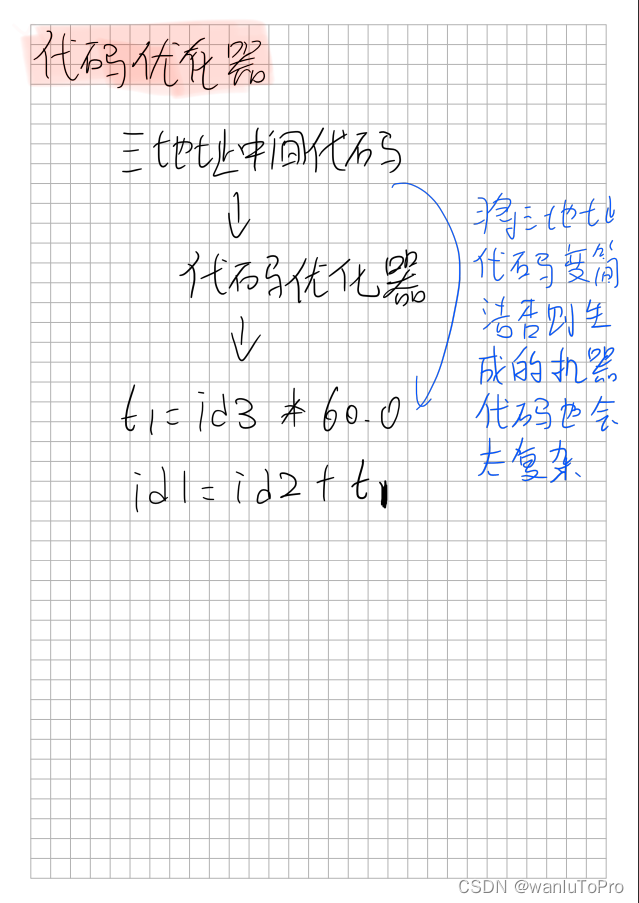 代码优化器
三地址中间代码
↓
代码优化器
↓
t1=id3 * 60.0
id1=id2+t1
将三地址
代码变简
洁否则生
成的机器
代码也会
太复杂
CSDN @wanluToPro